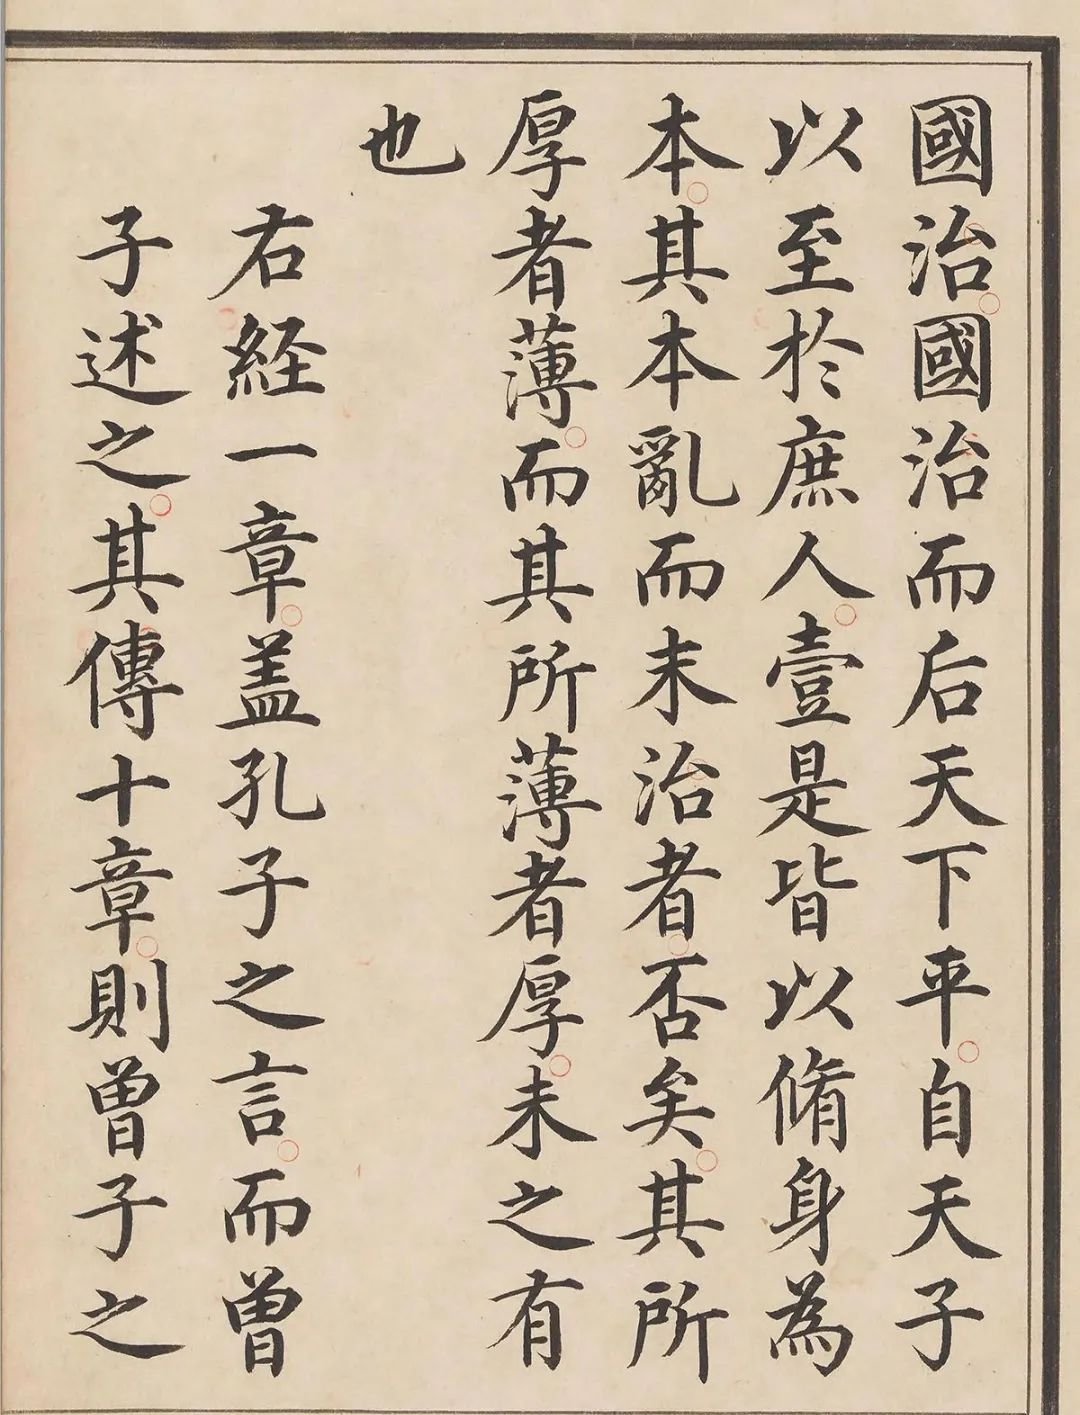 國治國治而后天下平自天子
以至於庶人壹是皆以脩身為
本其本亂而末治者否矣其所
厚者薄而其所薄者厚未之有
也
右經一章盖孔子之言而曾
子述之其傳十章則曾子之